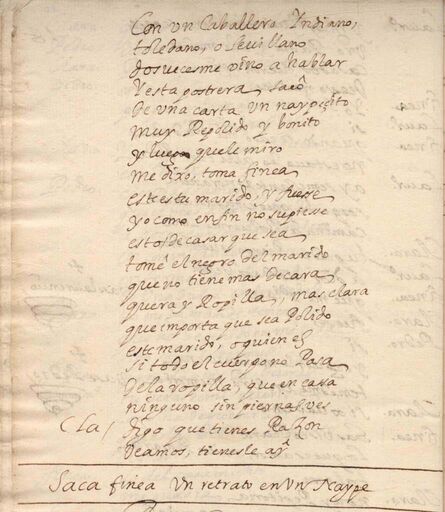 Con un Caballero Indiano,
toledano, o Sevillano
dosvecesme vino a hablar
Yesta postrera, sacó
De una carta un naypęito
muy Repolido y bonito
y luego quele miro
me dixo, toma finea
esteestu marido, y fuesse
yo como enfin no supiesse
estodecasar que sea
tomé el negro del marido
que no tiene mas decara,
cuera y Ropilla, mas clara
que importa que sea Polido
este marido, o quien es
si todo el cuerpo no Pasa
dela ropilla, que en casa
ninguno sin piernas ves
Cla / digo que tienes Razon
veamos, tienesle ay
Saca finea Un retrato en Un Naype